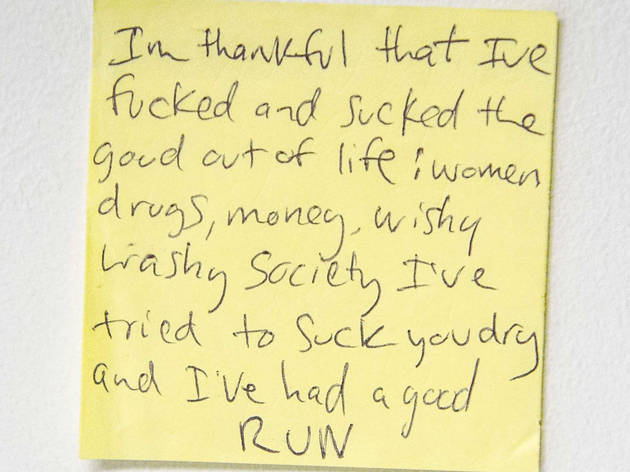 I'm thankful that I've
fucked and sucked the
good out of life : women
drugs, money, wishy
washy society I've
tried to suck you dry
and I've had a good
RUN